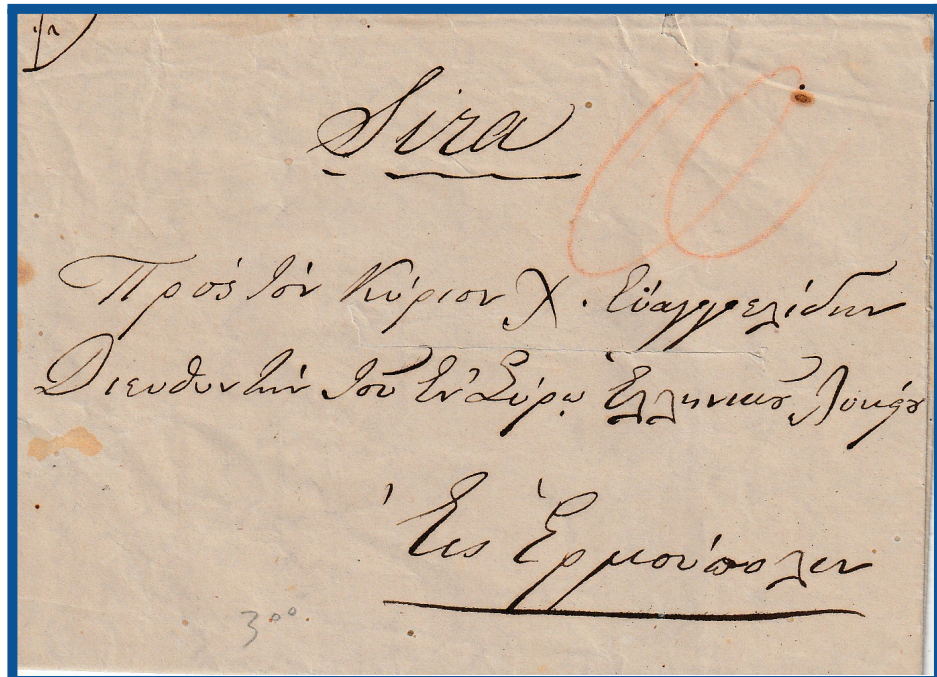 Sira
Πρὸς τὸν Κύριον Χ. Εὐαγγελίδην
Διευθυντὴν τοῦ ἐν Σύρῳ Ἑλληνικοῦ Λυκείου
Εἰς Ἑρμούπολιν
300